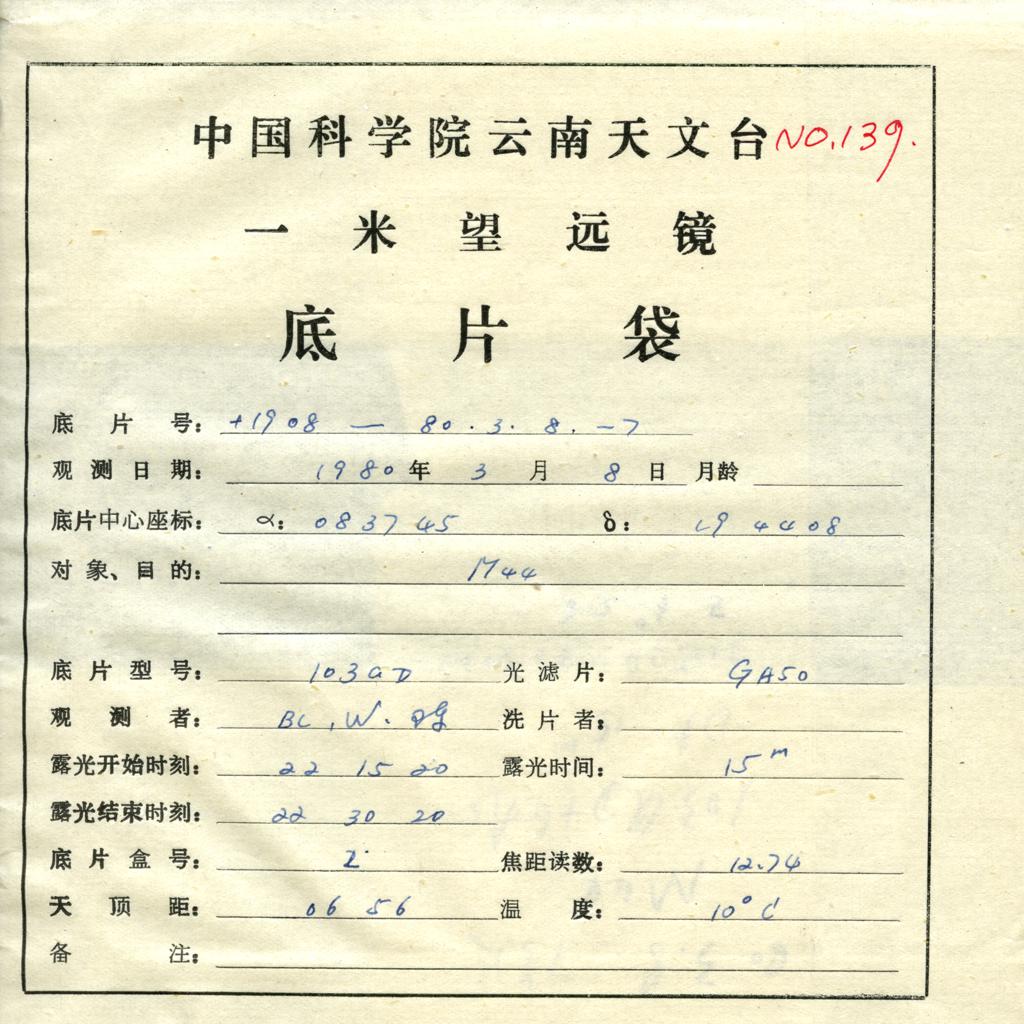 中国科学院云南天文台 NO.139.
一米望远镜
底片袋
底片号： +1908 — 80.3.8.-7
观测日期： 1980年 3月 8日 月龄
底片中心座标： α： 083745 δ： 194408
对象、目的： M44
底片型号： 103aD 光滤片： GA50
观测者： BL, W. 洗片者：
露光开始时刻： 22 15 20 露光时间： 15m
露光结束时刻： 22 30 20
底片盒号： 焦距读数： 12.74
天顶距： 06 56 温度： 10°C
备注：